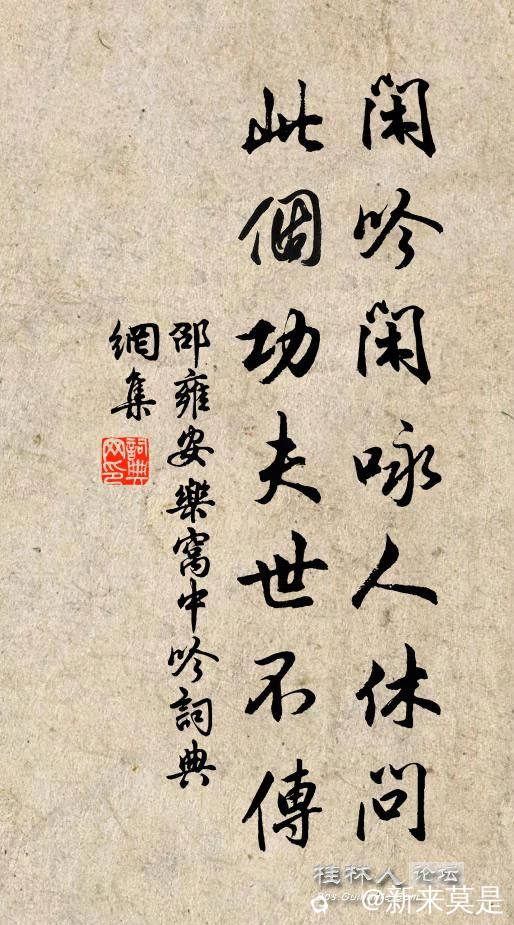 閑吟閑咏人休問
此個功夫世不傳
邵雍安樂窩中吟詞典
網集
詞典
桂林人论坛
bbs.Guilinlife.Com
@新来莫是